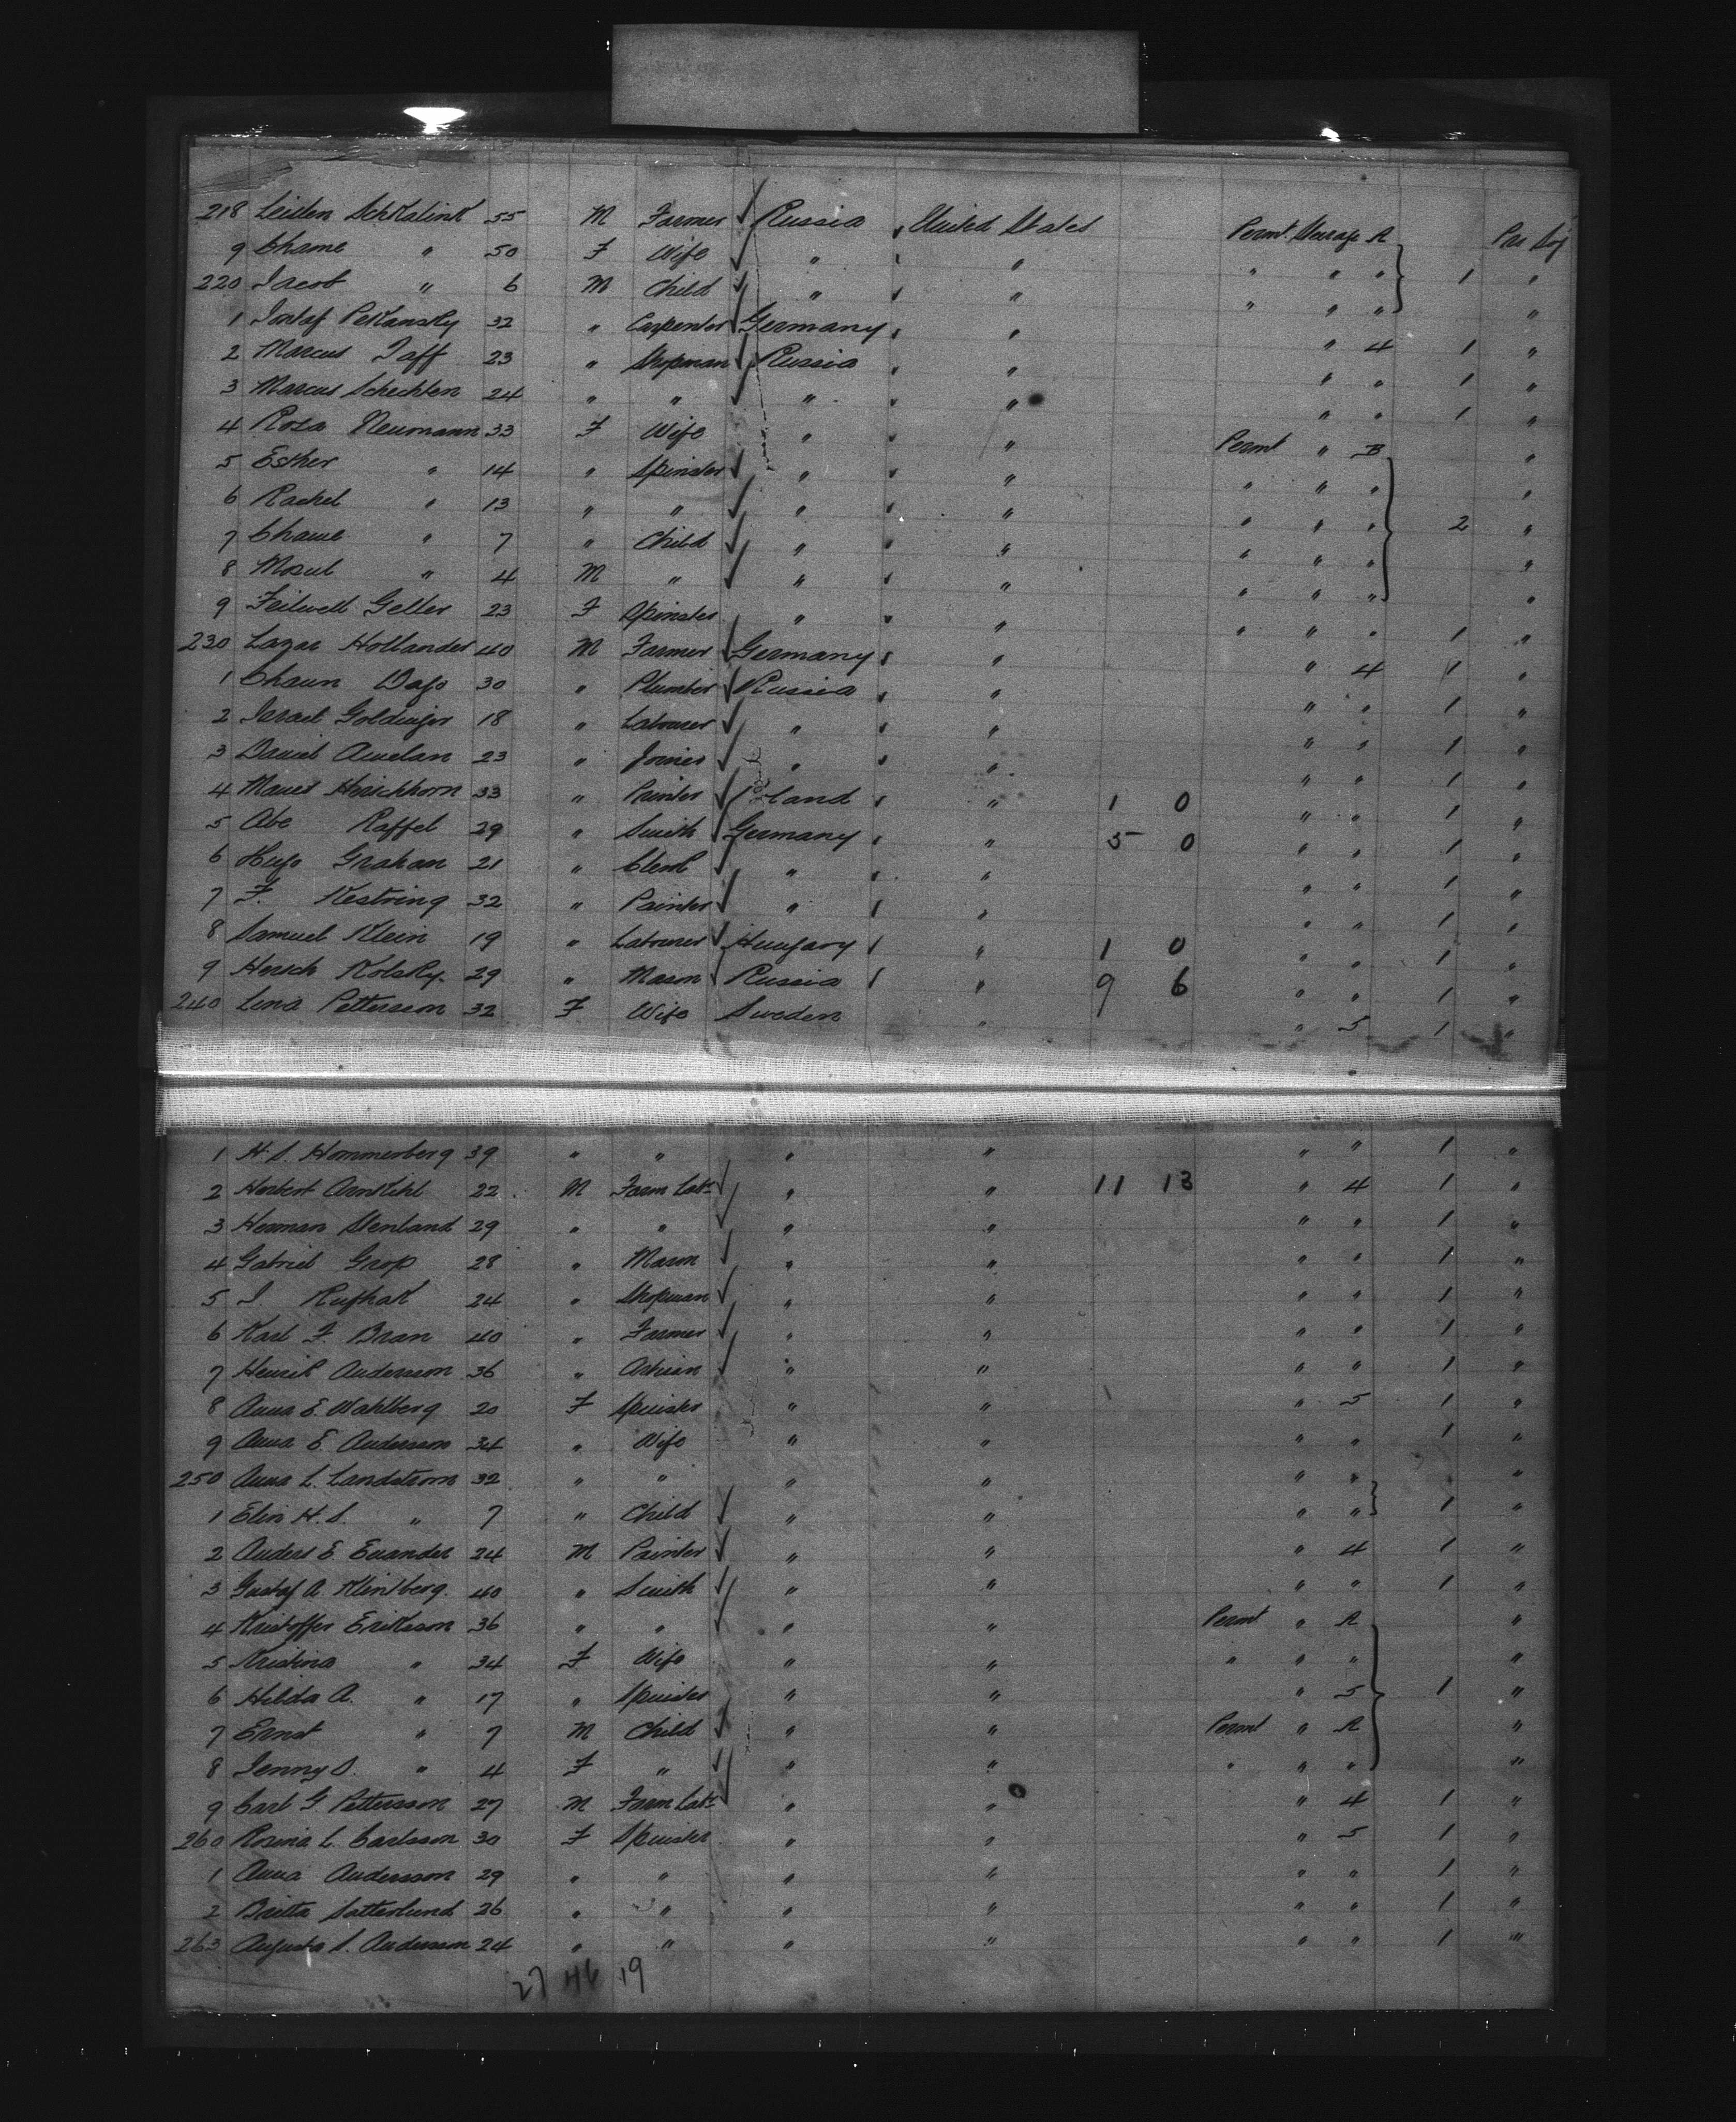 218 Leisten Schkalink 55 M Farmer Russia United States Permt. Steerage A Pro Soj
9 Chame " 50 F Wife " " " " " 1 "
220 Jacob " 6 M Child " " " " " "
1 PeKansky 32 " Carpenter Germany " " 4 1 "
2 Marcus Jaff 23 " Shopman Russia " " " 1 "
3 Marcus Schechten 24 " " " " " " 1 "
4 Rosa Neumann 33 F Wife " " Permt " B "
5 Esther " 14 " Spinster " " " " " "
6 Rachel " 13 " " " " " " " 2 "
7 Chame " 7 " Child " " " " " "
8 " 4 M " " " " " " "
9 Geller 23 F Spinster " " " " " 1 "
230 Lazar Hollander 40 M Farmer Germany " " 4 1 "
1 30 " Plumber Russia " " " 1 "
2 Israel 18 " Labourer " " " " 1 "
3 Daniel 23 " Joiner " " " " 1 "
4 Hirschhorn 33 " Painter " 1 0 " " 1 "
5 Abe Raffel 29 " Smith Germany " 5 0 " " 1 "
6 Hugo Graham 21 " Clerk " " " " 1 "
7 F. Kestring 32 " Painter " " " " 1 "
8 Samuel Klein 19 " Labourer Hungary " 1 0 " " 1 "
9 Hersch Kolsky 29 " Mason Russia " 9 6 " " 1 "
240 Lena Petterson 32 F Wife Sweden " " 5 1 "
1 H. S. Hommerberg 39 " " " " " " 1 "
2 Herbert 22 M Farm Labr " " 11 13 " 4 1 "
3 Herman Stenland 29 " " " " " " 1 "
4 Gabriel Grop 28 " Mason " " " " 1 "
5 J 24 " Shopman " " " " 1 "
6 Karl F. Bran 40 " Farmer " " " " 1 "
7 Henrik Andersson 36 " Artisan " " " " 1 "
8 Anna E. Wahlberg 20 F Spinster " " " 5 1 "
9 Anna E Andersson 34 " Wife " " " " 1 "
250 Anna L. Landstrom 32 " " " " " " "
1 Elin H. S. " 7 " Child " " " " 1 "
2 Anders E. Evander 24 M Painter " " " 4 1 "
3 Gustaf A. Klintberg. 40 " Smith " " " " 1 "
4 Kristoffer Erikson 36 " " " " Permt " A "
5 Kristina " 34 F Wife " " " " " "
6 Hilda A. " 17 " Spinster " " " 5 1 "
7 Ernst " 7 M Child " " Permt " A "
8 Jenny S. " 4 F " " " " " " "
9 Carl G Pettersson 27 M Farm Labr " " " 4 1 "
260 Rosina L. Carlsson 30 F Spinster " " " 5 1 "
1 Anna Andersson 29 " " " " " " 1 "
2 Britta Satterlund 26 " " " " " " 1 "
263 Augusta S. Anderson 24 " " " " " " 1 "
27 46 19